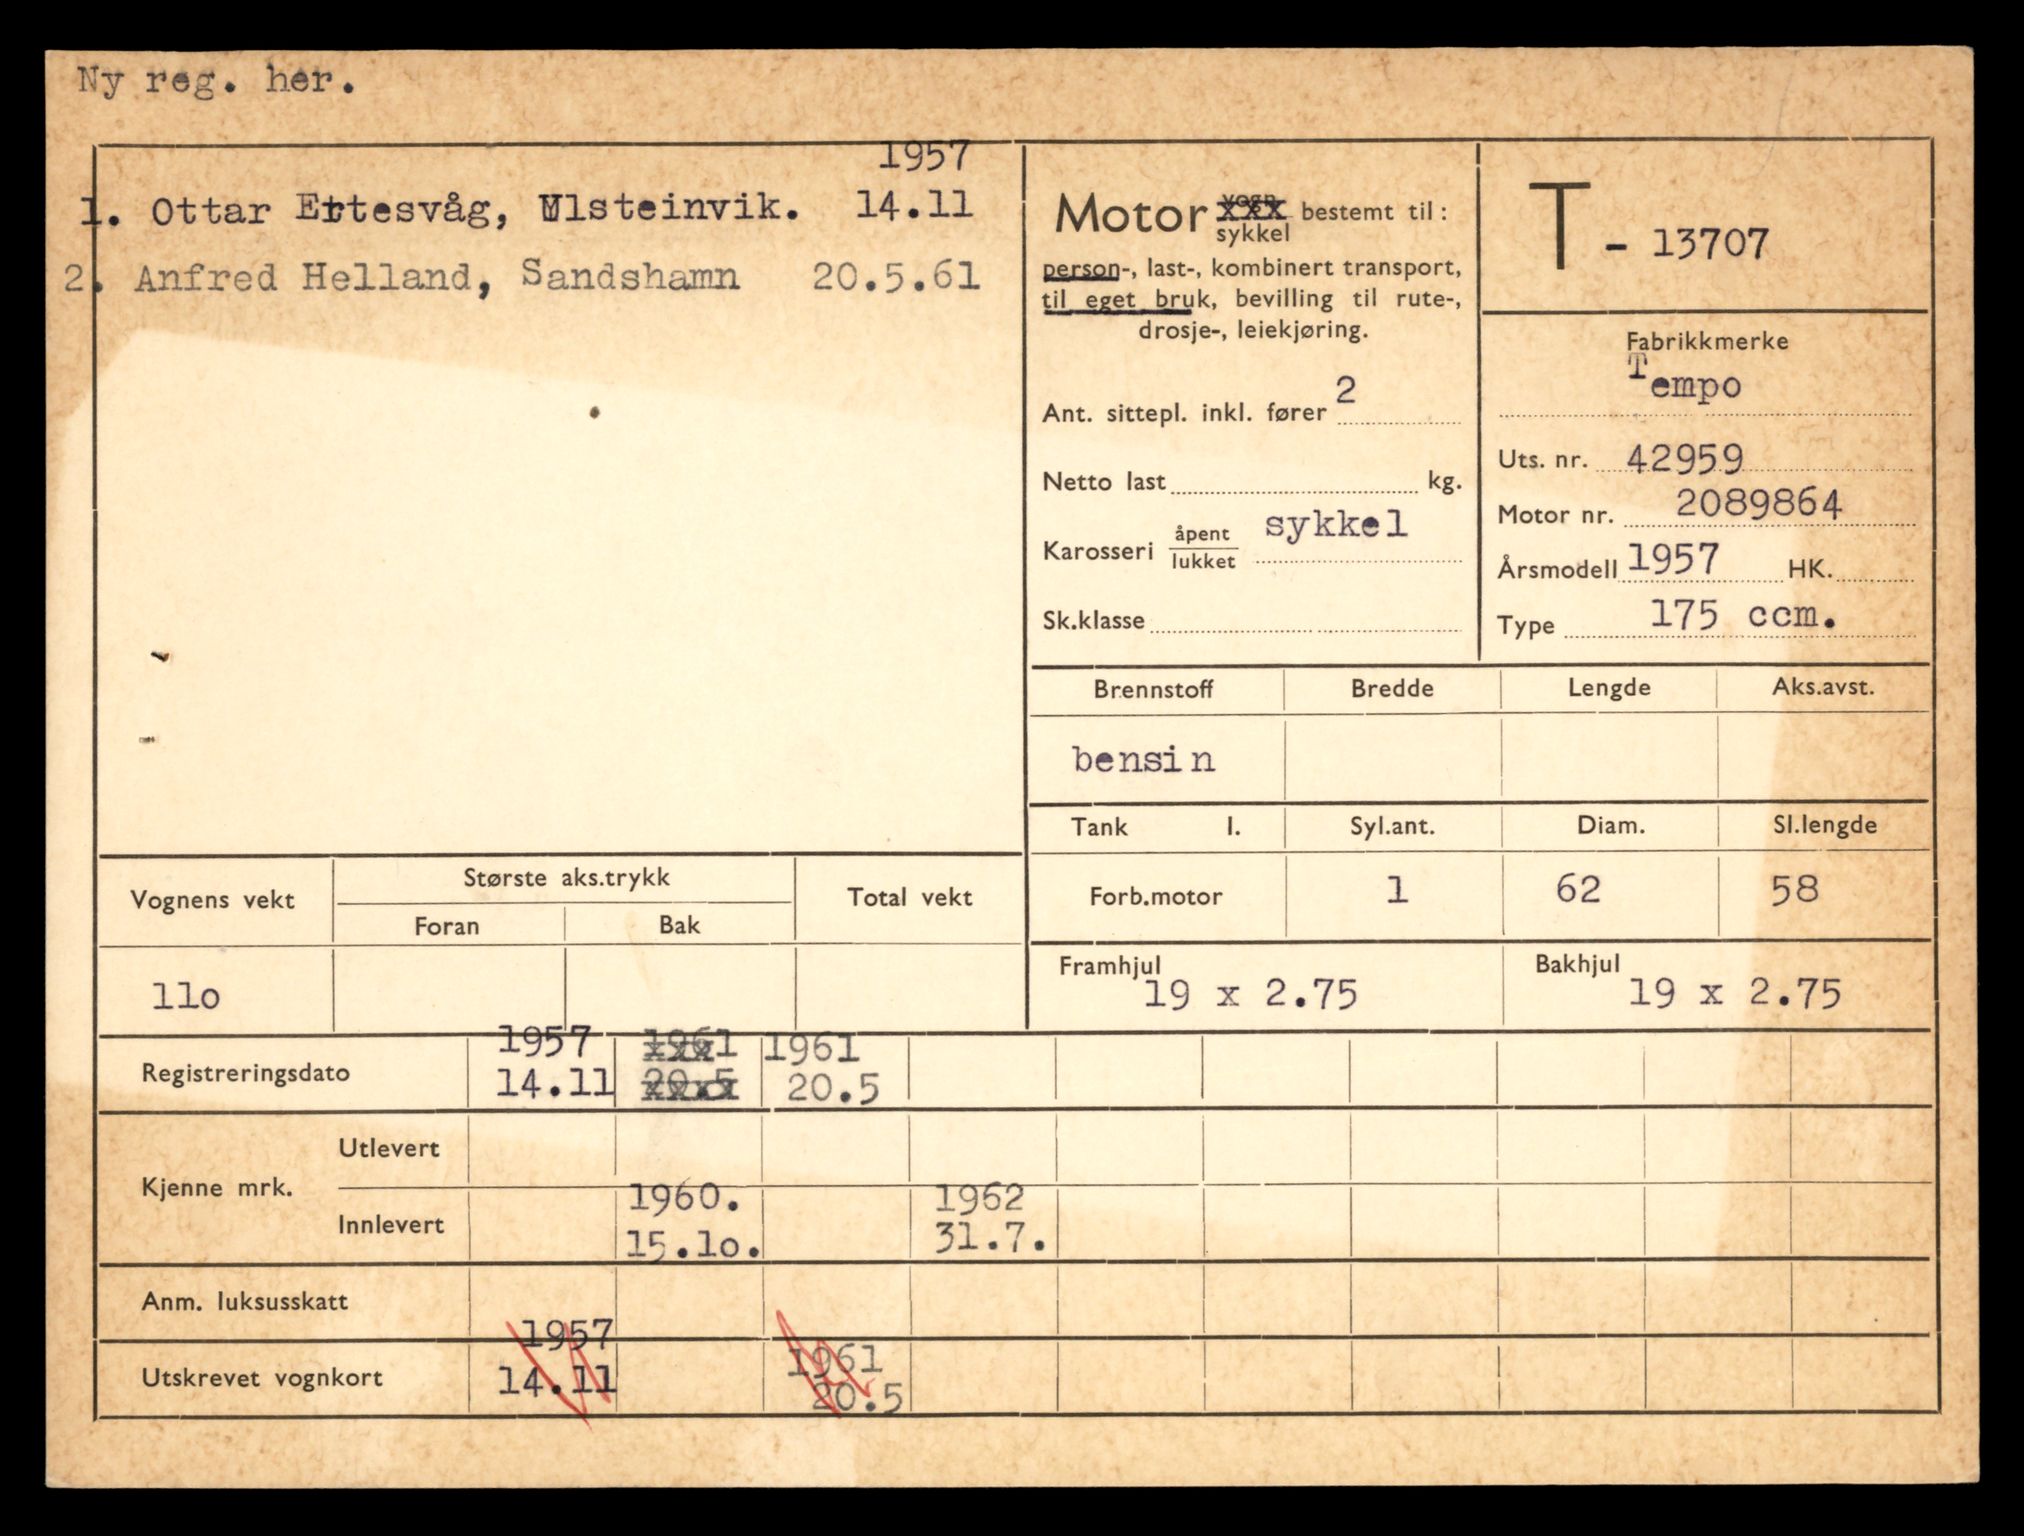 Ny reg. her.
1957
1. Ottar Ertesvåg, Ulsteinvik. 14.11
2. Anfred Helland, Sandshamn 20.5.61
Motor vogn bestemt til:
sykkel
person-, last-, kombinert transport,
til eget bruk, bevilling til rute-,
drosje-, leiekjøring.
Ant. sittepl. inkl. fører 2
Netto last kg.
Karosseri åpent sykkel
lukket
Sk.klasse
T - 13707
Fabrikkmerke
Tempo
Uts. nr. 42959
Motor nr. 2089864
Årsmodell 1957 HK.
Type 175 ccm.
Brennstoff Bredde Lengde Aks.avst.
bensin
Tank l. Syl.ant. Diam. Sl.lengde
Forb.motor 1 62 58
Framhjul Bakhjul
19 x 2.75 19 x 2.75
Vognens vekt Største aks.trykk Total vekt
Foran Bak
11o
1957 1961 1961
Registreringsdato 14.11 20.5 20.5
Utlevert
Kjenne mrk.
1960. 1962
Innlevert 15.1o. 31.7.
Anm. luksusskatt
1957 1961
Utskrevet vognkort 14.11 20.5